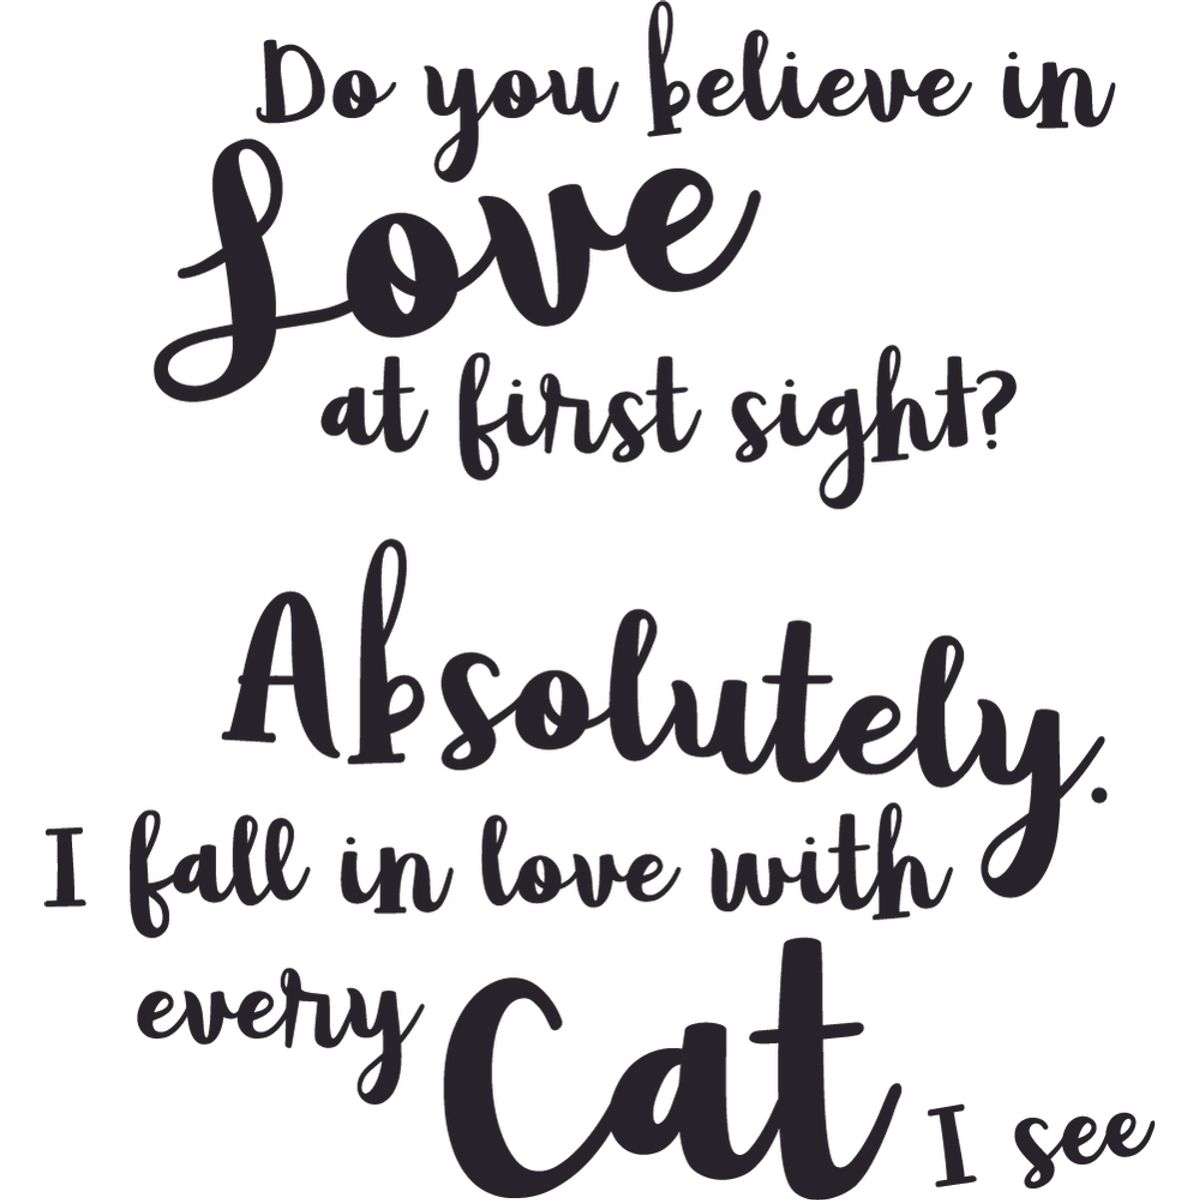 Do you believe in
Love
at first sight?
Absolutely.
I fall in love with
every Cat I see